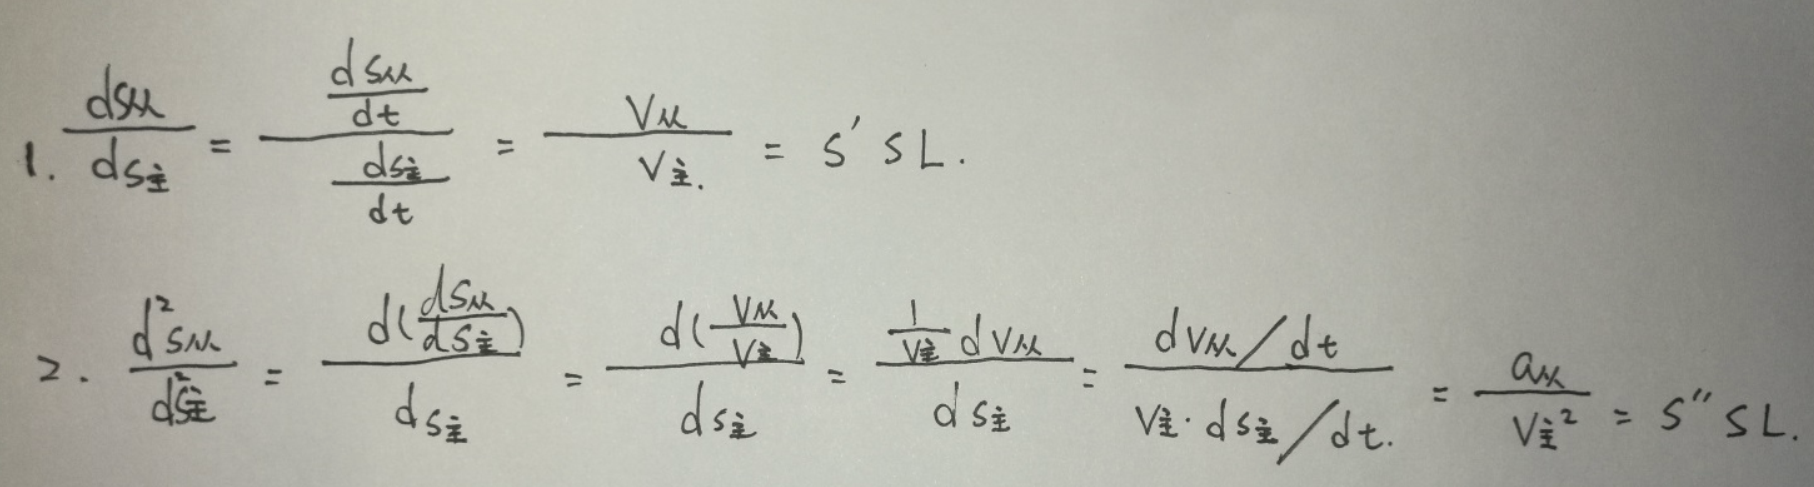 1. \frac{ds从}{ds主} = \frac{\frac{ds从}{dt}}{\frac{ds主}{dt}} = \frac{V从}{V主.} = s' SL.
2. \frac{d^2s从}{ds^2主} = \frac{d(\frac{ds从}{ds主})}{ds主} = \frac{d(\frac{V从}{V主})}{ds主} = \frac{\frac{1}{V主}dV从}{ds主} = \frac{dV从/dt}{V主·ds主/dt.} = \frac{a从}{V主^2} = s'' SL.